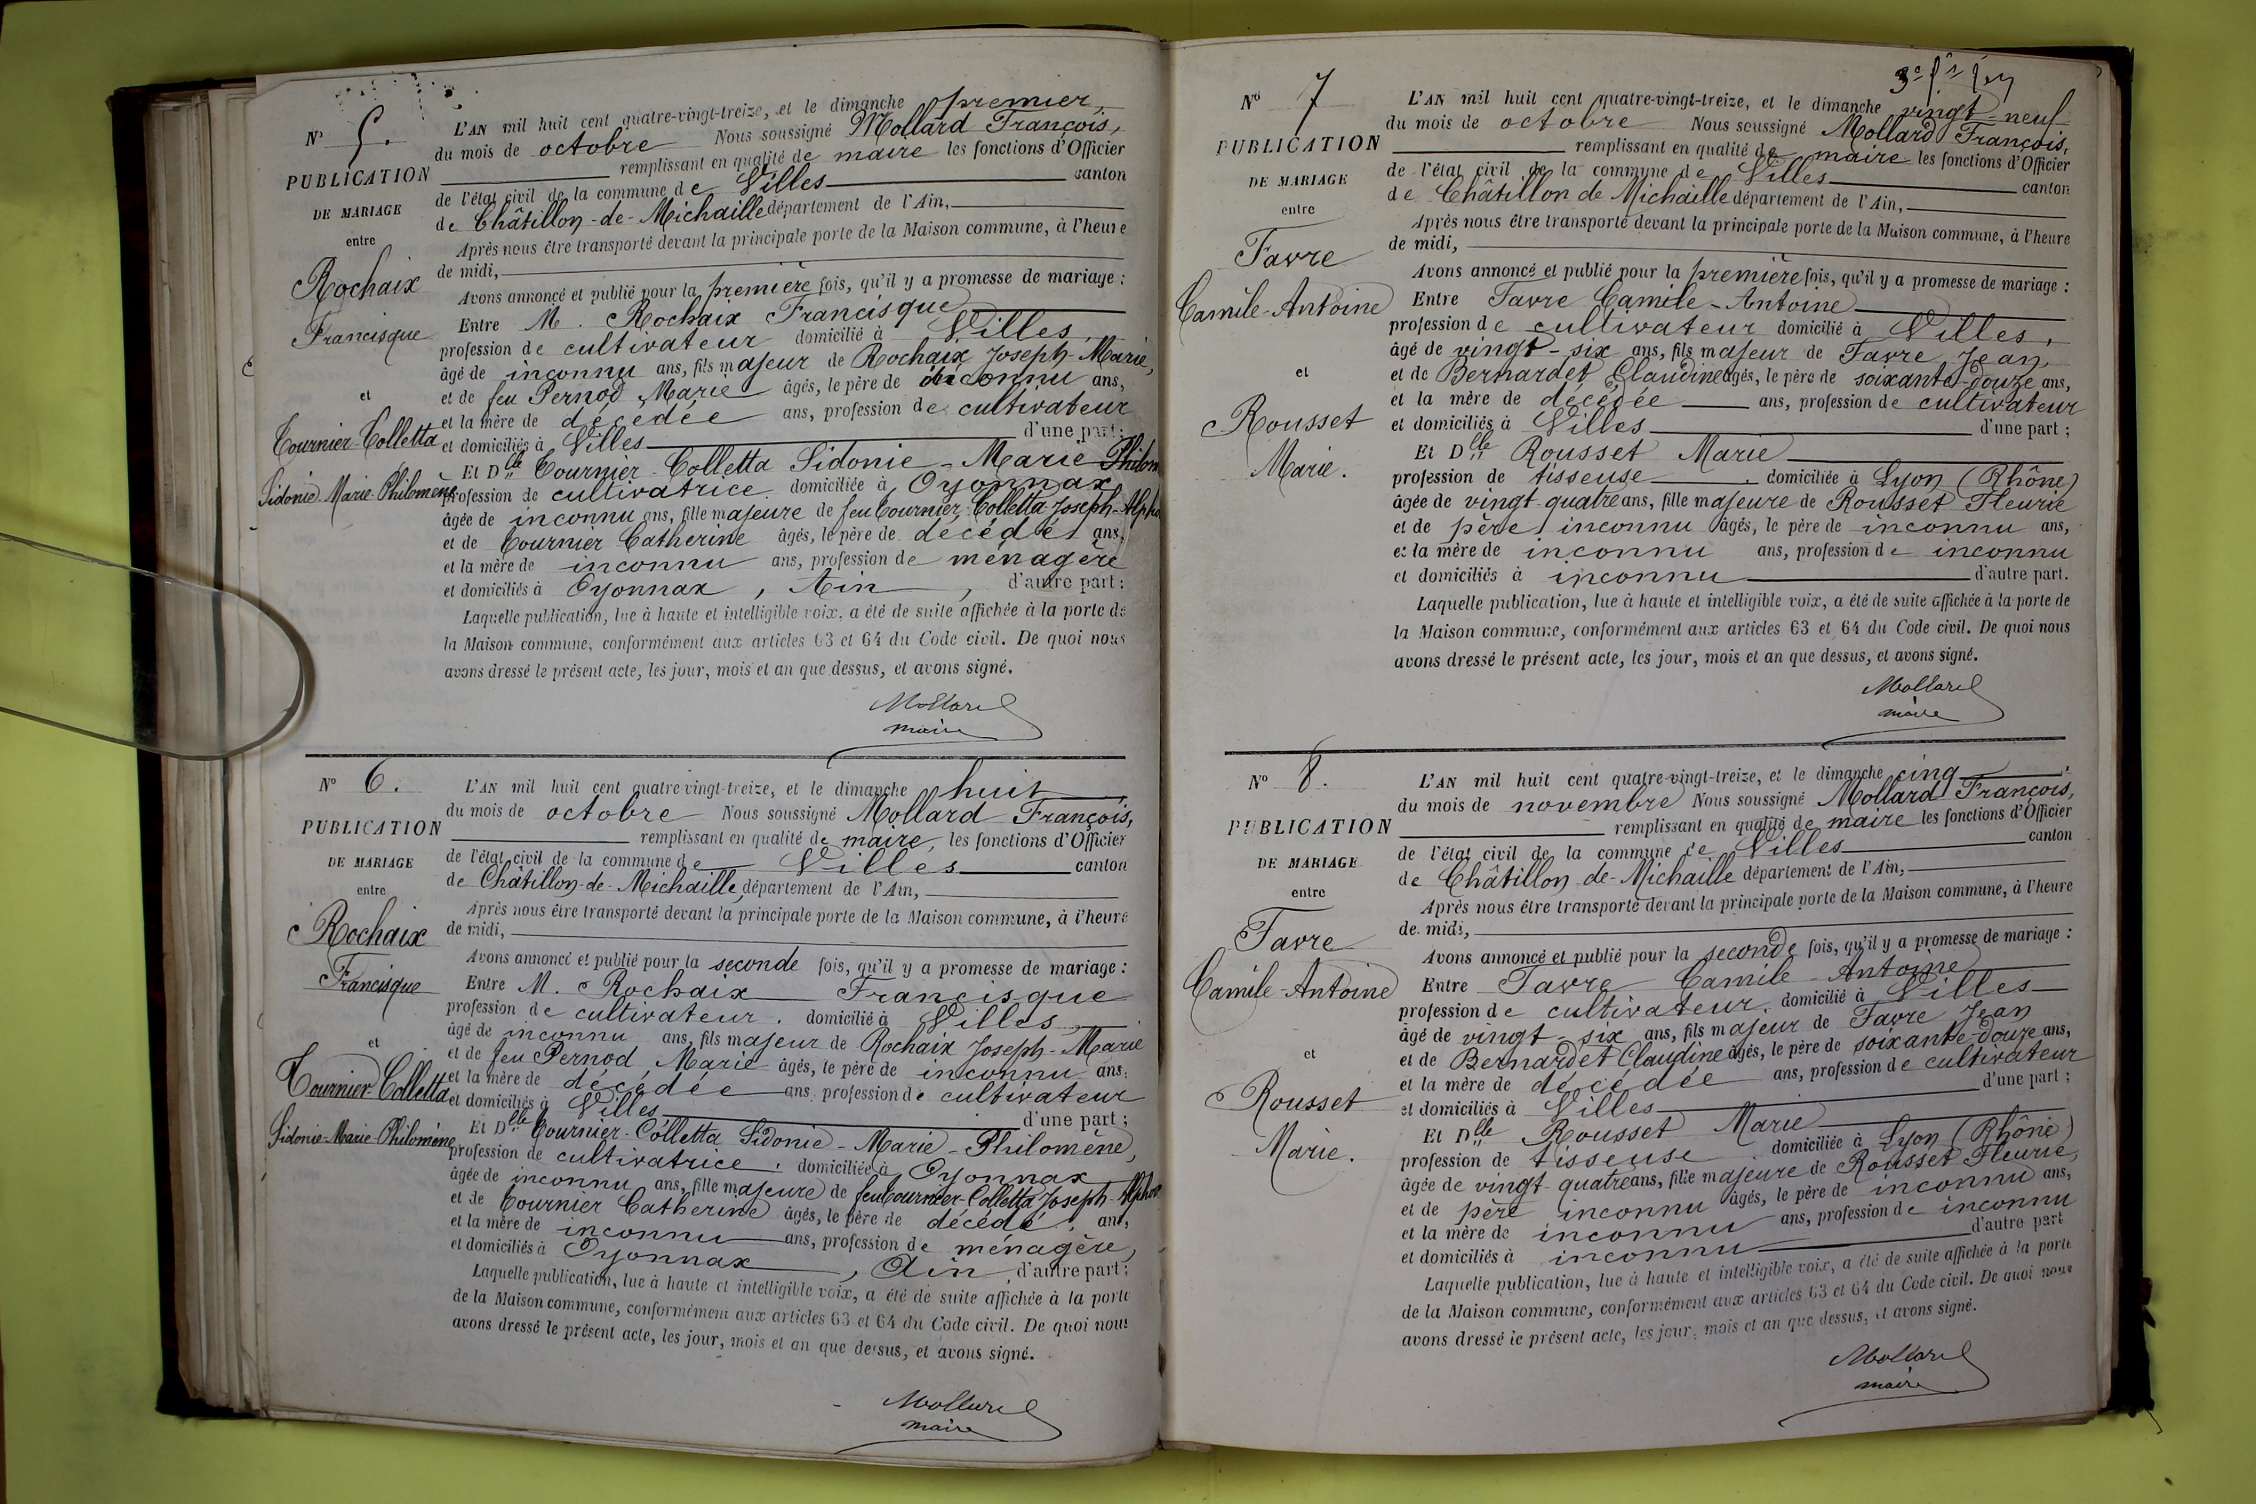 N° 5.
PUBLICATION
DE MARIAGE
entre
Rochaix
Francisque
et
Tournier-Colletta
Sidonie-Marie-Philomène
L'AN mil huit cent quatre-vingt-treize, et le dimanche premier,
du mois de octobre Nous soussigné Mollard François,
remplissant en qualité de maire les fonctions d'Officier
de l'état civil de la commune de Villes canton
de Châtillon-de-Michaille département de l'Ain,
Après nous être transporté devant la principale porte de la Maison commune, à l'heure
de midi,
Avons annoncé et publié pour la première fois, qu'il y a promesse de mariage :
Entre M. Rochaix Francisque
profession de cultivateur domicilié à Villes,
âgé de inconnu ans, fils majeur de Rochaix Joseph-Marie,
et de feu Pernod Marie âgés, le père de inconnu ans,
et la mère de décédée ans, profession de cultivateur
et domiciliés à Villes d'une part;
Et Dlle Tournier-Colletta Sidonie-Marie Philom
profession de cultivatrice. domiciliée à Oyonnax
âgée de inconnu ans, fille majeure de feu Tournier-Colletta Joseph-Alpho
et de Tournier Catherine âgés, le père de décédé ans,
et la mère de inconnu ans, profession de ménagère
et domiciliés à Oyonnax, Ain, d'autre part:
Laquelle publication, lue à haute et intelligible voix, a été de suite affichée à la porte de
la Maison commune, conformément aux articles 63 et 64 du Code civil. De quoi nous
avons dressé le présent acte, les jour, mois et an que dessus, et avons signé.
Mollard
maire
N° 6.
PUBLICATION
DE MARIAGE
entre
Rochaix
Francisque
et
Tournier-Colletta
Sidonie-Marie-Philomène
L'AN mil huit cent quatre-vingt-treize, et le dimanche huit
du mois de octobre Nous soussigné Mollard François,
remplissant en qualité de maire, les fonctions d'Officier
de l'état civil de la commune de Villes canton
de Châtillon-de-Michaille, département de l'Ain,
Après nous être transporté devant la principale porte de la Maison commune, à l'heure
de midi,
Avons annoncé et publié pour la seconde fois, qu'il y a promesse de mariage :
Entre M. Rochaix Francisque
profession de cultivateur. domicilié à Villes
âgé de inconnu ans, fils majeur de Rochaix Joseph-Marie
et de feu Pernod, Marie âgés, le père de inconnu ans,
et la mère de décédée ans, profession de cultivateur
et domiciliés à Villes d'une part;
Et Dlle Tournier-Colletta Sidonie-Marie-Philomène,
profession de cultivatrice. domiciliée à Oyonnax
âgée de inconnu ans, fille majeure de feu Tournier-Colletta Joseph-Alphon
et de Tournier Catherine âgés, le père de décédé, ans,
et la mère de inconnu ans, profession de ménagère,
et domiciliés à Oyonnax, Ain, d'autre part;
Laquelle publication, lue à haute et intelligible voix, a été de suite affichée à la porte
de la Maison commune, conformément aux articles 63 et 64 du Code civil. De quoi nous
avons dressé le présent acte, les jour, mois et an que dessus, et avons signé.
Mollard
maire
N° 7
PUBLICATION
DE MARIAGE
entre
Favre
Camile-Antoine
et
Rousset
Marie.
L'AN mil huit cent quatre-vingt-treize, et le dimanche vingt-neuf
du mois de octobre Nous soussigné Mollard François,
remplissant en qualité de maire les fonctions d'Officier
de l'état civil de la commune de Villes canton
de Châtillon de Michaille département de l'Ain,
Après nous être transporté devant la principale porte de la Maison commune, à l'heure
de midi,
Avons annoncé et publié pour la première fois, qu'il y a promesse de mariage :
Entre Favre Camile-Antoine
profession de cultivateur domicilié à Villes,
âgé de vingt-six ans, fils majeur de Favre Jean,
et de Bernardet Claudine âgés, le père de soixante-douze ans,
et la mère de décédée ans, profession de cultivateur
et domiciliés à Villes d'une part;
Et Dlle Rousset Marie
profession de tisseuse. domiciliée à Lyon (Rhône)
âgée de vingt-quatre ans, fille majeure de Rousset Fleurie
et de père inconnu âgés, le père de inconnu ans,
et la mère de inconnu ans, profession de inconnu
et domiciliés à inconnu d'autre part.
Laquelle publication, lue à haute et intelligible voix, a été de suite affichée à la porte de
la Maison commune, conformément aux articles 63 et 64 du Code civil. De quoi nous
avons dressé le présent acte, les jour, mois et an que dessus, et avons signé.
Mollard
maire
N° 8.
PUBLICATION
DE MARIAGE
entre
Favre
Camile-Antoine
et
Rousset
Marie.
L'AN mil huit cent quatre-vingt-treize, et le dimanche cinq,
du mois de novembre Nous soussigné Mollard François,
remplissant en qualité de maire les fonctions d'Officier
de l'état civil de la commune de Villes canton
de Châtillon-de-Michaille département de l'Ain,
Après nous être transporté devant la principale porte de la Maison commune, à l'heure
de midi,
Avons annoncé et publié pour la seconde fois, qu'il y a promesse de mariage :
Entre Favre Camile-Antoine
profession de cultivateur. domicilié à Villes
âgé de vingt-six ans, fils majeur de Favre Jean
et de Bernardet Claudine âgés, le père de soixante-douze ans,
et la mère de décédée ans, profession de cultivateur
et domiciliés à Villes d'une part;
Et Dlle Rousset Marie
profession de tisseuse domiciliée à Lyon (Rhône)
âgée de vingt-quatre ans, fille majeure de Rousset Fleurie,
et de père inconnu âgés, le père de inconnu ans,
et la mère de inconnu ans, profession de inconnu
et domiciliés à inconnu d'autre part
Laquelle publication, lue à haute et intelligible voix, a été de suite affichée à la porte
de la Maison commune, conformément aux articles 63 et 64 du Code civil. De quoi nous
avons dressé le présent acte, les jour, mois et an que dessus, et avons signé.
Mollard
maire